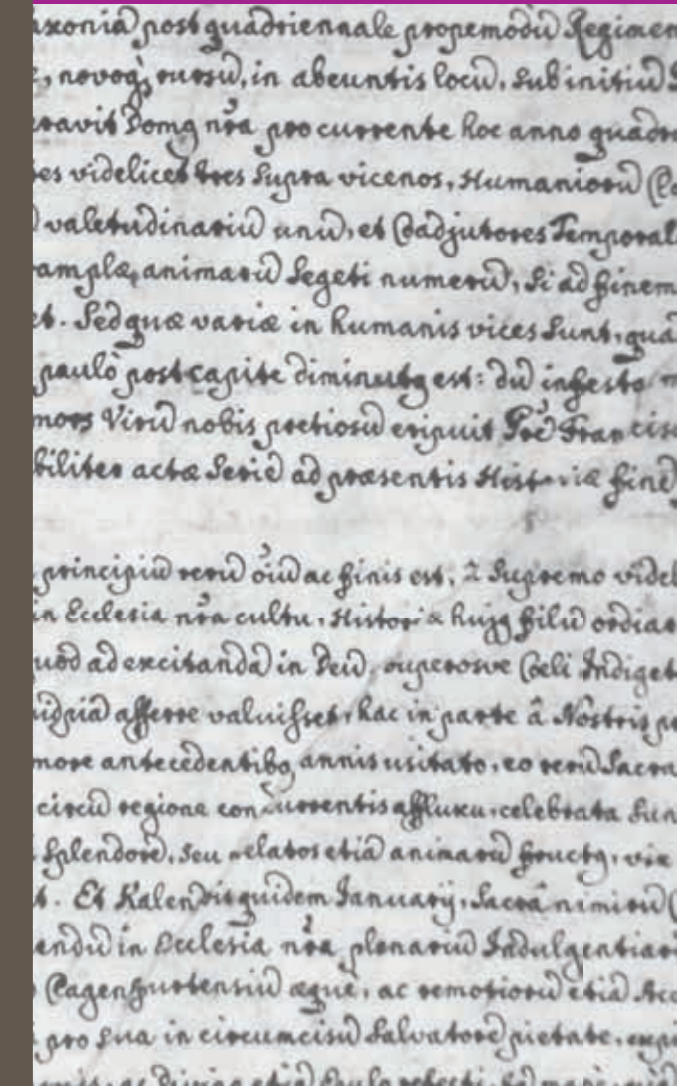 axonia᷉ post quadriennale propemodu᷉ Regimen
, novoq, rursu᷉, in abeuntis locu᷉, sub initiu᷉
ravit Domq nr̃a pro currente hoc anno quadra
es videlicet tres supra vicenos, Humanioru᷉ (Co
valetudinariu᷉ unu᷉, et Coadjutores Temporal
amplæ, animaru᷉ segeti numeru᷉, si ad finem
et. Sed quæ variæ in humanis vices sunt, qua
paulò post capite diminutq est: du᷉ infesta m
mors Viru᷉ nobis pretiosu᷉ eripuit Pre᷉ Francisc
biliter actæ serie᷉ ad præsentis Historiæ fine᷉
principiu᷉ reru᷉ oi᷉u᷉ ac finis est, à supremo videl
in Ecclesia nr̃a cultu, Historiæ hujq filu᷉ ordiar
uod ad excitanda᷉ in Deu᷉, superosve Coeli Indiget
uidpia᷉ afferre valuisset, hac in parte â Nostris pr
more antecedentibq annis usitato, eo reru᷉ Sacra
circu᷉ regione concurrentis affluxu, celebrata sun
splendore᷉, seu relatos etia᷉ animaru᷉ fructq, vix
t. Et Kalendis quidem Januarij, Sacra᷉ nimiru᷉ (
endu᷉ in Ecclesia nr̃a plenariu᷉ Indulgentiar
Clagenfurtensiu᷉ æquè, ac remotioru᷉ etia᷉ Acc
pro sua in circumcisu᷉ Salvatore᷉ pietate, expi